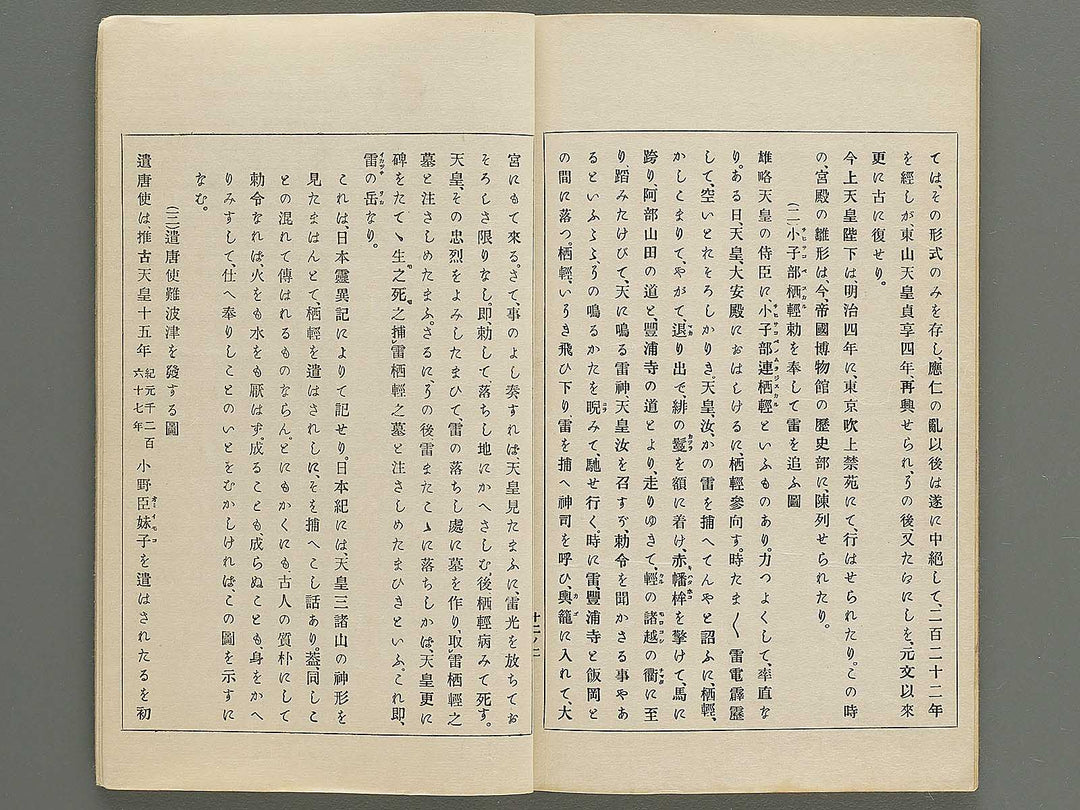 ては、その形式のみを存し、應仁の亂以後は遂に中絶して、二百二十二年
を經しが、東山天皇貞享四年再興せられ、その後又たえにしを、元文以來
更に古に復せり。
今上天皇陛下は、明治四年に東京吹上禁苑にて、行はせられたり。この時
の、宮殿の雛形は、今、帝國博物館の歷史部に陳列せられたり。
(二)小子部栖輕勅を奉して雷を追ふ圖
雄略天皇の侍臣に、小子部連栖輕といふものあり。力つよくして、率直な
り。ある日、天皇、大安殿におはしけるに、栖輕參向す。時たま〱雷電霹靂
して、空いとおそろしかりき。天皇、汝、かの雷を捕へてんやと詔ふに、栖輕、
かしこまりて、やがて、退り出で、緋の鬘を額に着け、赤幡桙を擎げて、馬に
跨り、阿部山田の道と、豐浦寺の道とより、走りゆきて、輕の諸越の衢に至
り、踏みたけびて、天に鳴る雷神、天皇汝を召すぞ、勅令を聞かさる事やあ
るといふ〻、その鳴るかたを睨みて、馳せ行く。時に雷、豐浦寺と飯岡と
の間に落つ。栖輕、いそき飛ひ下り、雷を捕へ神司を呼ひ、輿籠に入れて、大
廿二ノ二
宮にもて來る。さて、事のよし奏すれは、天皇見たまふに、雷光を放ちてお
そろしさ限りなし。即勅して、落ちし地にかへさしむ後栖輕病みて死す。
天皇、その忠烈をよみしたまひて雷の落ちし處に墓を作り、取雷栖輕之
墓と注さしめたまふ。さるにその後雷またこゝに落ちしかば、天皇更に
碑をたてゝ生之死之捕雷栖輕之墓と注さしめたまひきといふ。これ即、
雷の岳なり。
これは、日本靈異記によりて記せり。日本紀には、天皇三諸山の神形を
見たまはんとて、栖輕を遣はされしに、そを捕へこし話あり。蓋、同しこ
との混れて傳はれるものならん。とにもかくにも、古人の質朴にして
勅令なれは火をも水をも厭はず。成ることも成らぬことも、身をかへ
りみすして、仕へ奉りしことのいとをむかしければ、この圖を示すに
なむ。
(三)遣唐使難波津を發する圖
遣唐使は推古天皇十五年紀元千二百六十七年小野臣妹子を遣はされたるを初